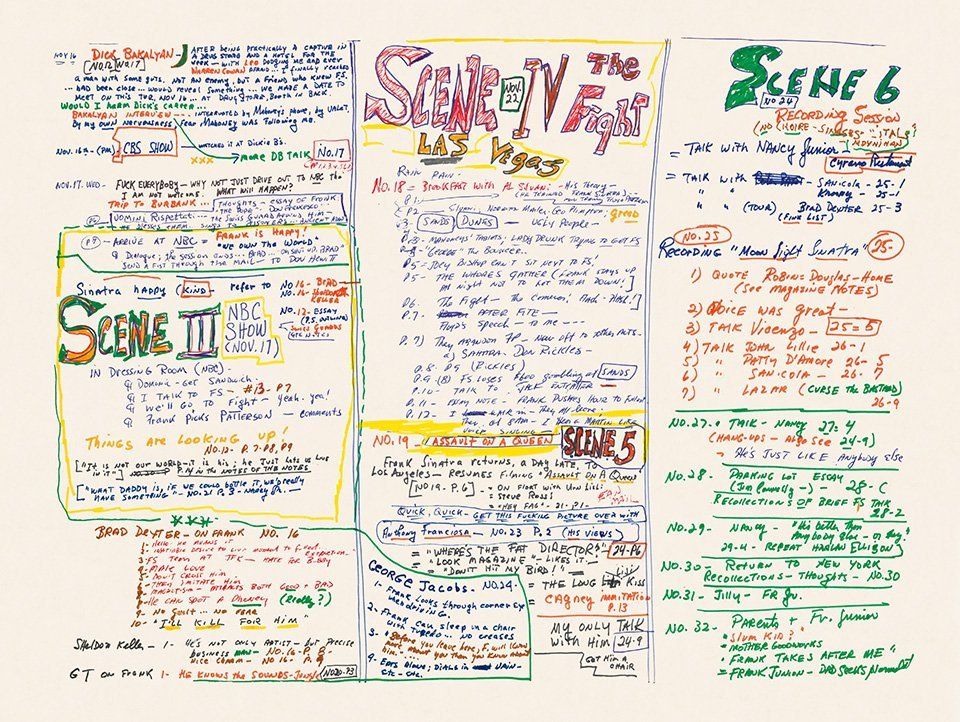 NOV 16
DICK BAKALYAN -
NO.12 NO.17
AFTER BEING PRACTICALLY A CAPTIVE IN
A DRUG STORE AND A HOTEL FOR THE
WEEK - WITH LEO DODGING ME AND EVEN
WARREN COWAN AFRAID... I FINALLY REACHED
A MAN WITH SOME GUTS. NOT AN ENEMY, BUT A FRIEND WHO KNEW F.S.
HAD BEEN CLOSE... WOULD REVEAL SOMETHING... WE MADE A DATE TO
MEET ON THIS TUE, NOV 16 - AT DRUG STORE, BOOTH IN BACK.
WOULD I HARM DICK'S CAREER -
BAKALYAN INTERVIEW - INTERRUPTED BY MAHONEY'S PHONE, BY VALET,
BY MY OWN NERVOUSNESS FEAR MAHONEY WAS FOLLOWING ME.
NOV. 16-(PM)
CBS SHOW
WATCHES IT AT DICKIE B's.
XXX
MORE DB TALK
No.17
NOV. 17. WED - FUCK EVERYBODY - WHY NOT JUST DRIVE OUT TO NBC
I AM NOT WELCOME. WHAT WILL HAPPEN?
TRIP TO BURBANK... THOUGHTS - ESSAY OF FRANK
THE POPE - DON
UOMINI RISPETTATI
FRANK is HAPPY!
(P9) - ARRIVE AT NBC = "WE OWN THE WORLD"
Dialogue; the SESSION ENDS... BRAD
SEND A FIST THROUGH THE MAIL - TO DON HEWITT
Sinatra happy (KIND - refer to
NO 16 - BRAD
NO. 16 - SHELDON
KELLER
NO. 12 - ESSAY
SCENE III
NBC
SHOW
(NOV. 17)
IN DRESSING ROOM (NBC) -
DOMINIC - GET SANDWICH
I TALK TO FS #13 - P.7
WE'LL GO TO FIGHT - Yeah. yeu!
FRANK PICKS PATTERSON - COMMENTS
THINGS ARE LOOKING UP!
NO.12 - P.7-P8, P9
"IT IS NOT OUR WORLD - IT IS HIS; HE JUST LETS US LIVE
IN IT" P.14 IN THE NOTES OF THE NOTES
"WHAT DADDY IS, IF WE COULD BOTTLE IT, WE'D REALLY
HAVE SOMETHING" - NO.21 P.3 - NANCY JR.
***
BRAD DEXTER - ON FRANK NO. 16
1- Hello HE MEANS IT
2- INSATIABLE DESIRE TO LIVE
3- FS TERM AT JFK - HATE FOR B.BOY
4- MAKE LOVE
5- DON'T CROSS HIM
6- THEY IMITATE HIM
7- MAGNETISM - ATTRACTS BOTH GOOD + BAD
8- HE CAN SPOT A PHONEY (Really?)
9- NO GUILT... NO FEAR
10- "I'LL KILL FOR HIM"
SHELDON Keller - 1- HE'S NOT ONLY ARTIST - BUT PRECISE
BUSINESS MAN - NO 16 - P. 8
NICE COMM - NO 16 - P. 9
GT ON FRANK 1- HE KNOWS THE SOUNDS - Jungle NO20-P3
SCENE IV The
NOV. 22
Fight
LAS VEGAS
RAIN PAIN -
NO. 18 = BREAKFAST WITH AL SILVANI - His Theory -
P. 1
P2
SANDS DUNES - UGLY PEOPLE -
greed
P.3 - MAHONEY'S THREATS; LADY DRUNK TRYING TO GET FS
"GEORGE" THE BOUNCER...
P.5 - JOEY BISHOP CAN'T SIT NEXT TO FS!
P.5 - THE WHORES GATHER (FRANK STAYS UP
All night NOT TO LET THEM DOWN!)
P.6. The Fight - The COMMON!
P.7. AFTER FITE -
Floyd's Speech - TO ME -
P.7) They ABANDON FP - NOW OFF TO OTHER
a) SAHARA - DON RICKLES -
P.8 - P9 (Rickles)
P.9 (B) FS LOSES $600 gambling at SANDS
P.10 - TALK TO JACK ENTRATTER
P.11 - ESSAY NOTE - FRANK PUSHES HARD TO
P.12 - I
THEY ALL LEAVE.
THEY AT 8AM - I HEAR A MARTIN LIKE
VOICE SINGING
NO. 19 - "ASSAULT ON A QUEEN"
SCENE 5
Frank SINATRA RETURNS, A DAY LATE, TO
Los Angeles - RESUMES FILMING "ASSAULT ON A QUEEN"
NO 19 - P. 6 - ON FLOAT WITH Urn Lisi:
= STEVE ROSSI
= "HEY FAG" - 21-P.1 -
QUICK, QUICK - GET THIS FUCKING PICTURE OVER WITH
ANTHONY FRANCIOSA - NO. 23 P. 2 (HIS VIEWS)
= "WHERE'S THE FAT DIRECTOR?" - 24-P6
= "LOOK MAGAZINE - LIKES IT"
= "DON'T HIT MY BIRD!"
Lisi
= THE LONG KISS
= CAGNEY IMMITATION
P. 13
MY ONLY TALK
WITH HIM 24-9
GOT HIM A
CHAIR
GEORGE JACOBS. NO 24 -
1- FRANK LOOKS THROUGH CORNER EYE
2. FRANK CAN SLEEP IN A CHAIR
WITH TUXEDO... NO CREASES
3 - "BEFORE YOU LEAVE HERE, F. WILL KNOW
MORE ABOUT YOU THAN YOU KNOW ABOUT
HIM..."
4 - EATS ALONE; DIALS IN UAIN -
ETC - ETC.
SCENE 6
NO 24
RECORDING SESSION
= TALK WITH NANCY Junior -
= TALK WITH SANICOLA - 25-1
" " KRONEY - 25-
" " (TOUR) BRAD DEXTER - 25-3
(FINE LIST)
NO. 25
RECORDING "MOON Light SINATRA" 25-
1) QUOTE ROBIN-DOUGLAS-HOME
(See MAGAZINE NOTES)
2) VOICE WAS GREAT -
3) TALK VICENZO - 25=5
4) TALK JOHN Lillie 26-1
5) " PATTY D'AMORE 26- 5
6) " SANICOLA - 26- 7
7) " LAZAR (CURSE the BASTARD)
26-9
NO. 27 - TALK - NANCY 27: 4
(HANG-UPS - ALSO SEE 24-9)
- HE'S JUST LIKE ANYBODY ELSE
NO. 28 - PARKING LOT ESSAY
(Jim Connelly -) 28- (
RECOLLECTIONS OF BRIEF FS TALK
28-2
NO. 29 - NANCY - "His better than
Anybody else - or they
29-4 - REPEAT HARLAN ELLISON)
NO. 30 - RETURN TO NEW YORK
RECOLLECTIONS - THOUGHTS - NO.30
NO. 31 - JILLY - FR JR.
NO. 32 - PARENTS + Fr. Junior
= "SLUM KID?"
= MOTHER GOODWORKS
= FRANK TAKES AFTER ME"
= FRANK JUNIOR - DAD SEEKS